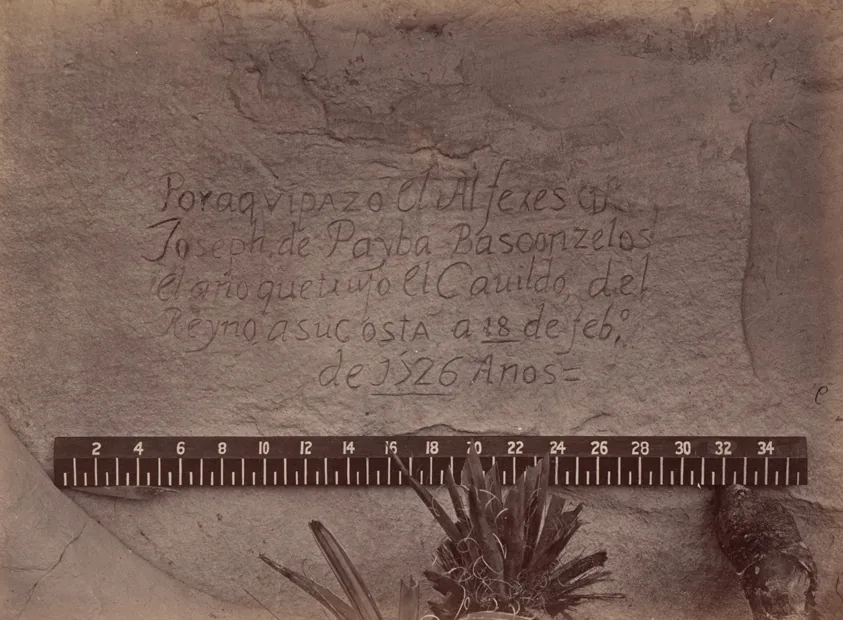 Por aqvi pazo el Alferes Dn
Joseph, de Payba Basconzelos
el año que trujo el Cauildo, del
Reyno a su costa a 18 de feb,º
de 1726 Anos =
2 4 6 8 10 12 14 16 18 20 22 24 26 28 30 32 34
e